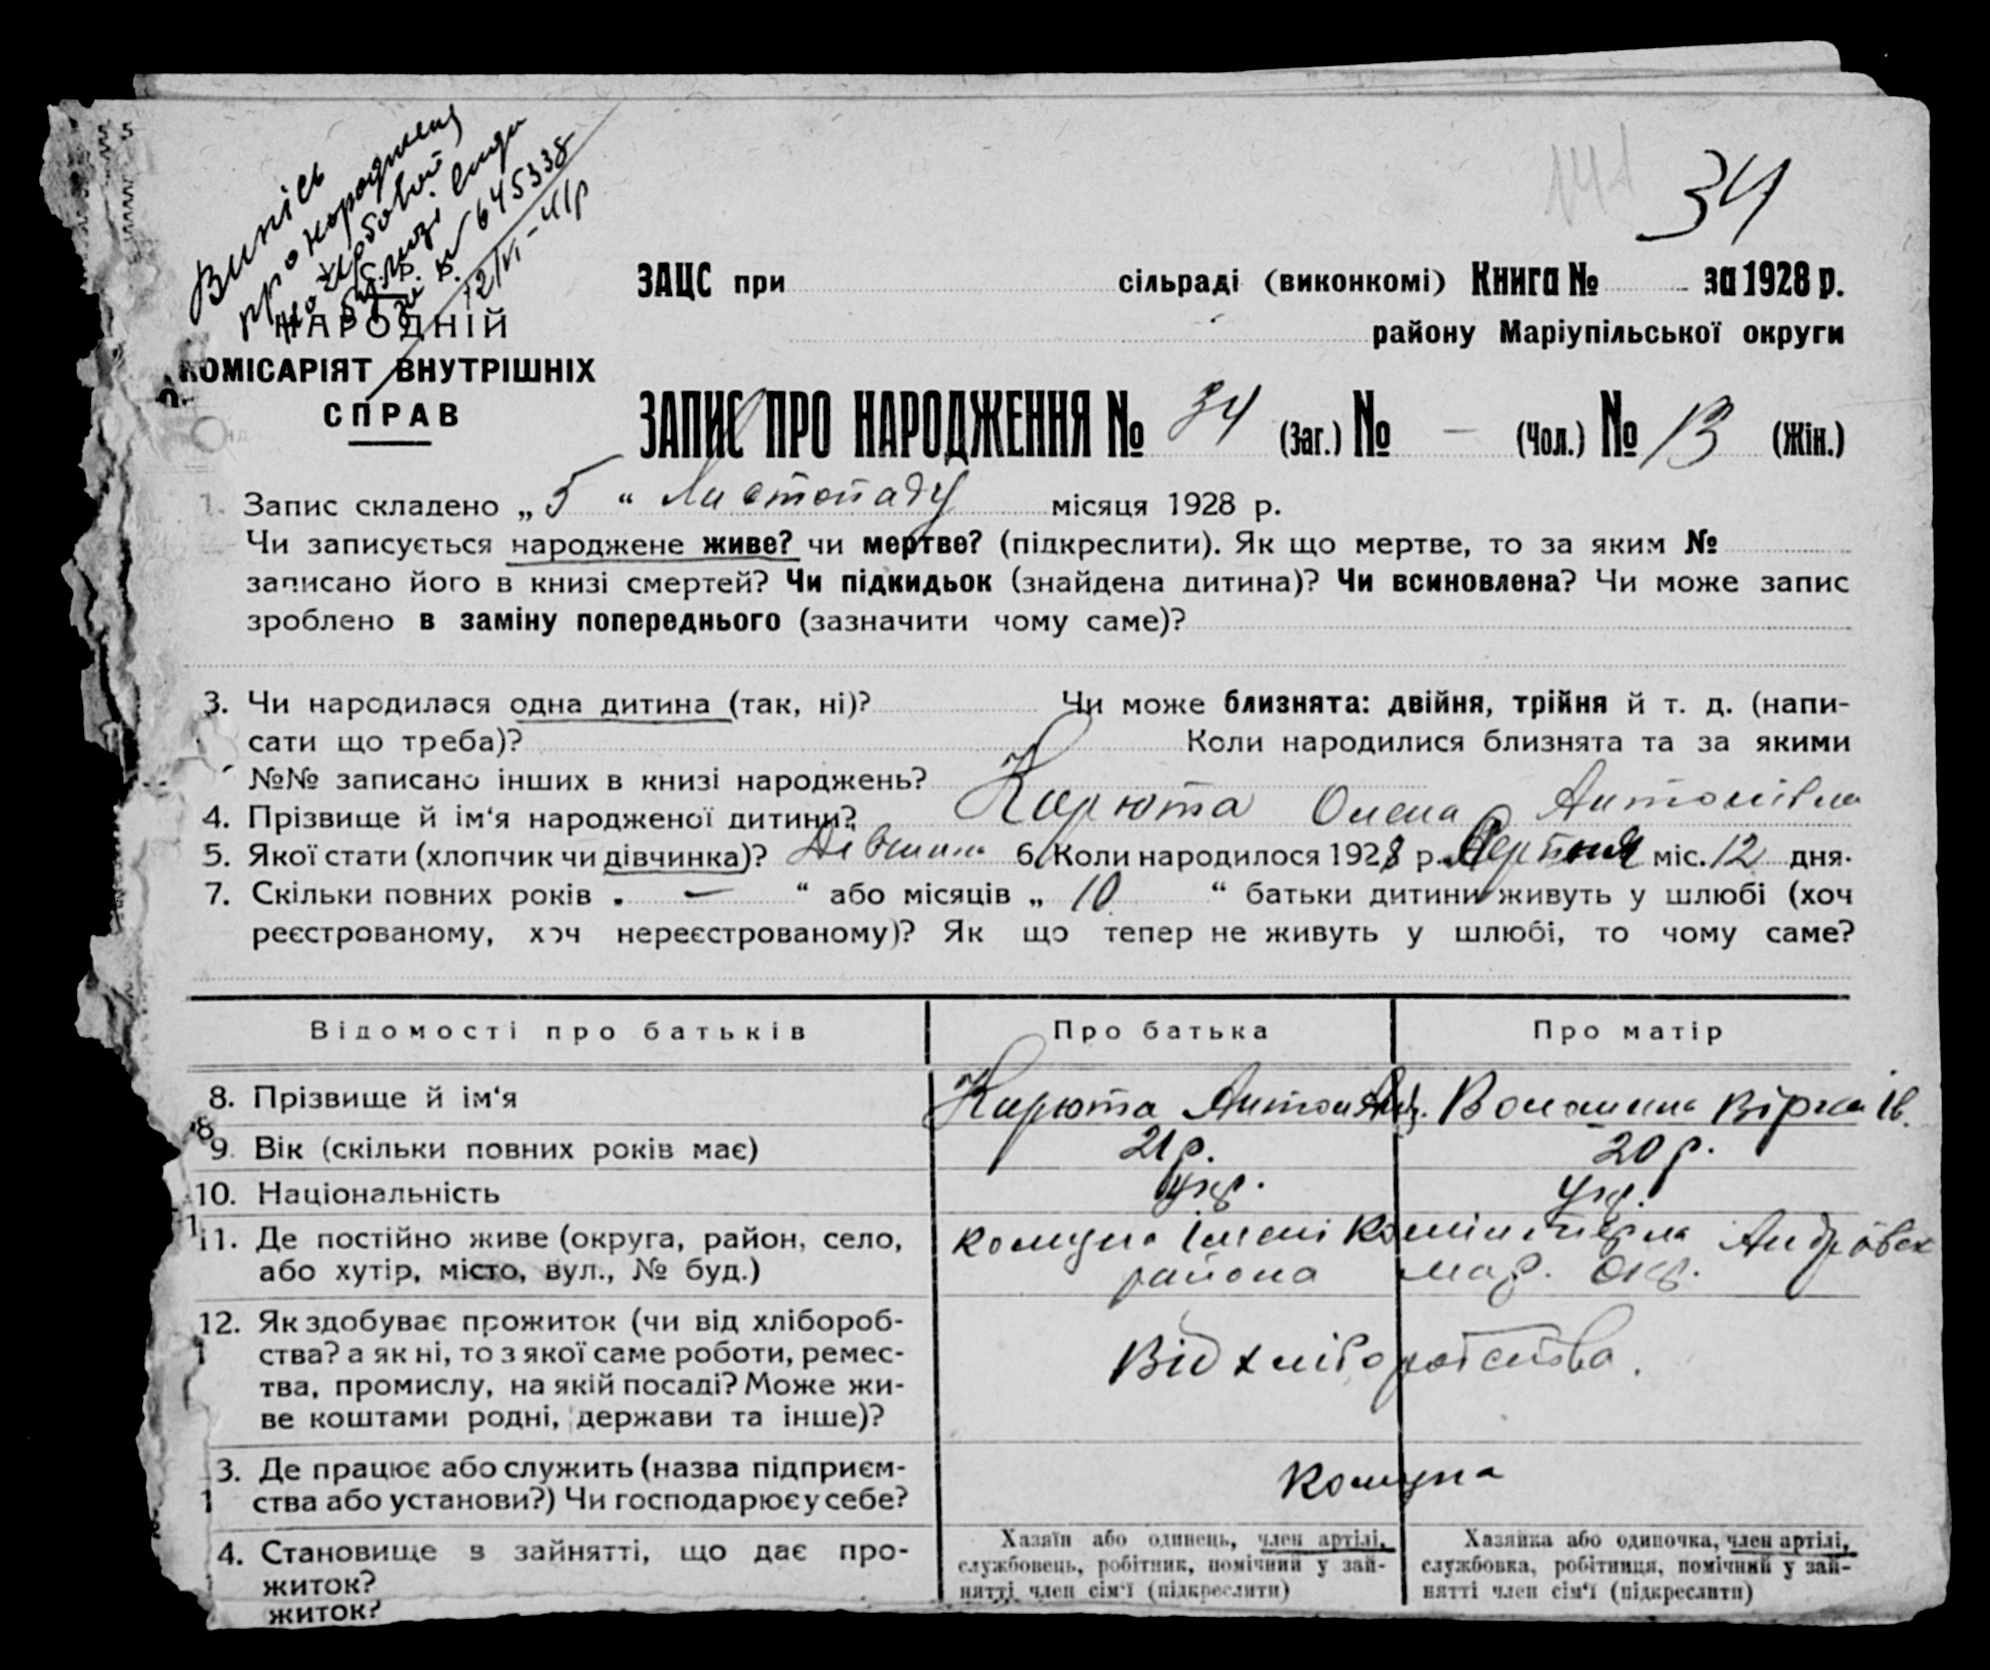 34
Випісь
про народження
по
№ 645338
12/VI-41р
ЗАЦС при сільраді (виконкомі) Книга № за 1928 р.
району Маріупільської округи
НАРОДНІЙ
КОМІСАРІЯТ ВНУТРІШНІХ
СПРАВ
ЗАПИС ПРО НАРОДЖЕННЯ № 34 (Заг.) № – (Чол.) № 13 (Жін.)
1. Запис складено „ 5 “ Листопаду місяця 1928 р.
Чи записується народжене живе? чи мертве? (підкреслити). Як що мертве, то за яким №
записано його в книзі смертей? Чи підкидьок (знайдена дитина)? Чи всиновлена? Чи може запис
зроблено в заміну попереднього (зазначити чому саме)?
3. Чи народилася одна дитина (так, ні)? Чи може близнята: двійня, трійня й т. д. (напи-
сати що треба)? Коли народилися близнята та за якими
№№ записано інших в книзі народжень?
4. Прізвище й ім‘я народженої дитини? Карюта Олена Антонівна
5. Якої стати (хлопчик чи дівчинка)? Дівчина 6. Коли народилося 1928 р. Серпня міс. 12 дня.
7. Скільки повних років „ – “ або місяців „ 10 “ батьки дитини живуть у шлюбі (хоч
реєстрованому, хоч нереєстрованому)? Як що тепер не живуть у шлюбі, то чому саме?
Відомості про батьків Про батька Про матір
8. Прізвище й ім‘я Карюта Антон Волошина Вірка Ів.
9. Вік (скільки повних років має) 21 р. 20 р.
10. Національність Укр. Укр.
11. Де постійно живе (округа, район, село, комуна імені Комінтерна Андрівск
або хутір, місто, вул., № буд.) района Мар. Окр.
12. Як здобуває прожиток (чи від хлібороб-
ства? а як ні, то з якої саме роботи, ремес- Від хліборобства.
тва, промислу, на якій посаді? Може жи-
ве коштами родні, держави та інше)?
3. Де працює або служить (назва підприєм- Комуна
ства або установи?) Чи господарює у себе?
4. Становище в зайнятті, що дає про- Хазяїн або одинець, член артілі, Хазяйка або одиночка, член артілі,
житок? службовець, робітник, помічний у зай- службовка, робітниця, помічний у зай-
житок? нятті член сім‘ї (підкреслити) нятті член сім‘ї (підкреслити)